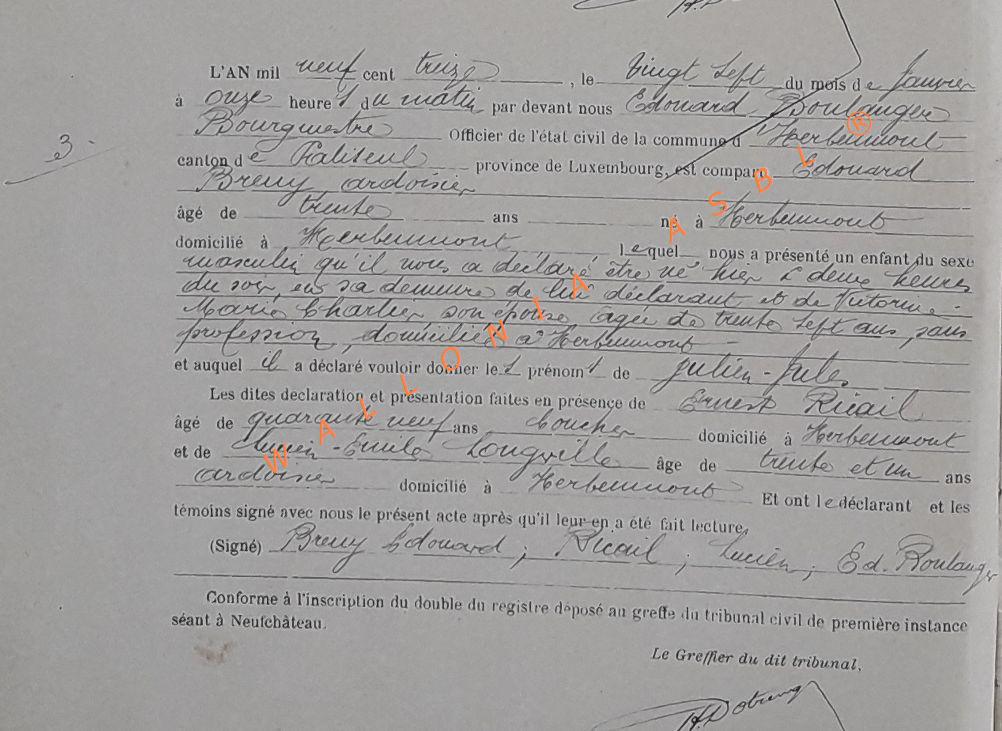 L'AN mil neuf cent treize, le Vingt Sept du mois de Janvier
à onze heures du matin par devant nous Edouard Boulanger
3.
Bourgmestre Officier de l'état civil de la commune d'Herbeumont
canton de Paliseul province de Luxembourg, est comparu Edouard
Breuy, ardoisier
âgé de trente ans né à Herbeumont
domicilié à Herbeumont lequel nous a présenté un enfant du sexe
masculin qu'il nous a déclaré être né hier à deux heures
du soir, en sa demeure de lui déclarant et de Victorine-
Marie Charlier son épouse agée de trente sept ans, sans
profession, domiciliée à Herbeumont
et auquel il a déclaré vouloir donner les prénoms de Julien-Jules
Les dites déclaration et présentation faites en présence de Ernest Ricail
âgé de quarante neuf ans boucher domicilié à Herbeumont
et de Lucien-Emile Longville âge de trente et un ans
ardoisier domicilié à Herbeumont Et ont le déclarant et les
témoins signé avec nous le présent acte après qu'il leur en a été fait lecture,
(Signé) Breuy Edouard ; Ricail ; Lucien ; Ed. Boulanger
Conforme à l'inscription du double du registre déposé au greffe du tribunal civil de première instance
séant à Neufchâteau.
Le Greffier du dit tribunal,
WALLONIA ASBL ®